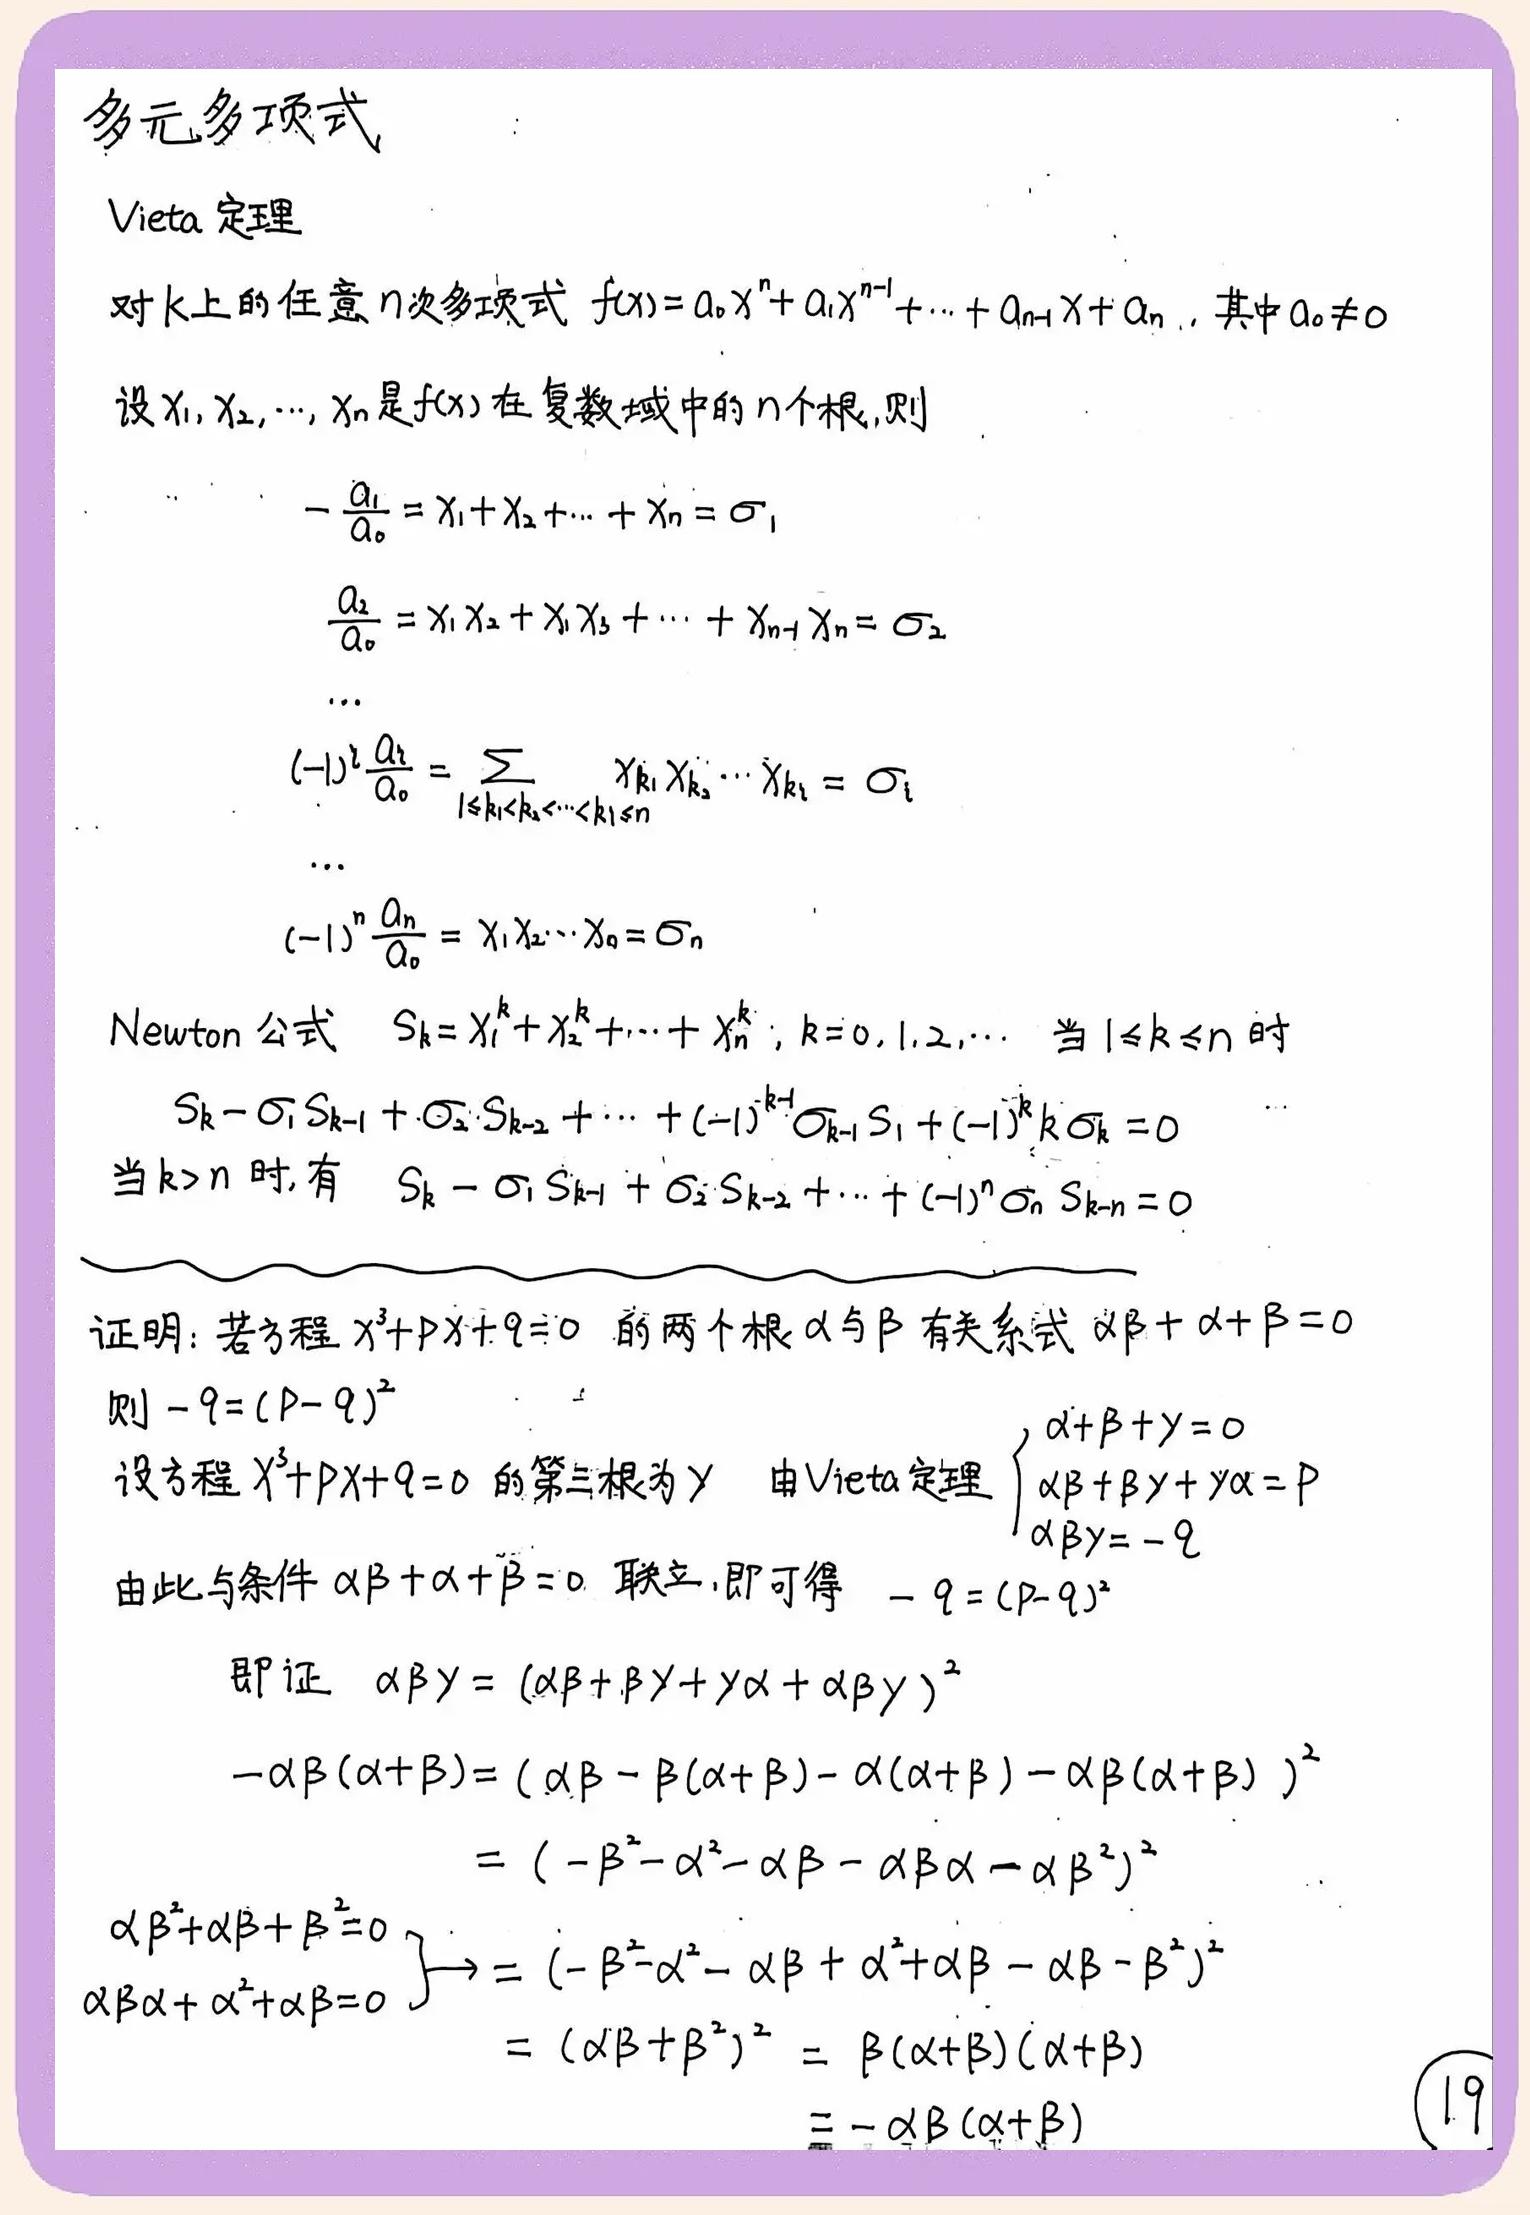 多元多项式
Vieta 定理
对k上的任意n次多项式 f(x)=a₀xⁿ+a₁xⁿ⁻¹+…+aₙ₋₁x+aₙ, 其中a₀≠0
设x₁,x₂,…,xₙ是f(x)在复数域中的n个根,则
-a₁/a₀=x₁+x₂+…+xₙ=σ₁
a₂/a₀=x₁x₂+x₁x₃+…+xₙ₋₁xₙ=σ₂
…
(-1)ⁱaᵢ/a₀=∑_{1≤k₁<k₂<…<kᵢ≤n} x_{k₁}x_{k₂}…x_{kᵢ}=σᵢ
…
(-1)ⁿaₙ/a₀=x₁x₂…xₙ=σₙ
Newton 公式 Sₖ=x₁ᵏ+x₂ᵏ+…+xₙᵏ, k=0,1,2,… 当1≤k≤n时
Sₖ-σ₁Sₖ₋₁+σ₂Sₖ₋₂+…+(-1)ᵏ⁻¹σₖ₋₁S₁+(-1)ᵏkσₖ=0
当k>n时,有 Sₖ-σ₁Sₖ₋₁+σ₂Sₖ₋₂+…+(-1)ⁿσₙSₖ₋ₙ=0
证明:若方程x³+px+q=0 的两个根α与β有关系式αβ+α+β=0
则-q=(p-q)²
设方程x³+px+q=0的第三根为γ 由Vieta定理 { α+β+γ=0
αβ+βγ+γα=p
αβγ=-q
由此与条件αβ+α+β=0 联立,即可得 -q=(p-q)²
即证 αβγ=(αβ+βγ+γα+αβγ)²
-αβ(α+β)=(αβ-β(α+β)-α(α+β)-αβ(α+β))²
=(-β²-α²-αβ-αβα-αβ²)²
αβ²+αβ+β²=0
αβα+α²+αβ=0 } → =(-β²-α²-αβ+α²+αβ-αβ-β²)²
=(αβ+β²)²=β(α+β)(α+β)
=-αβ(α+β)
19